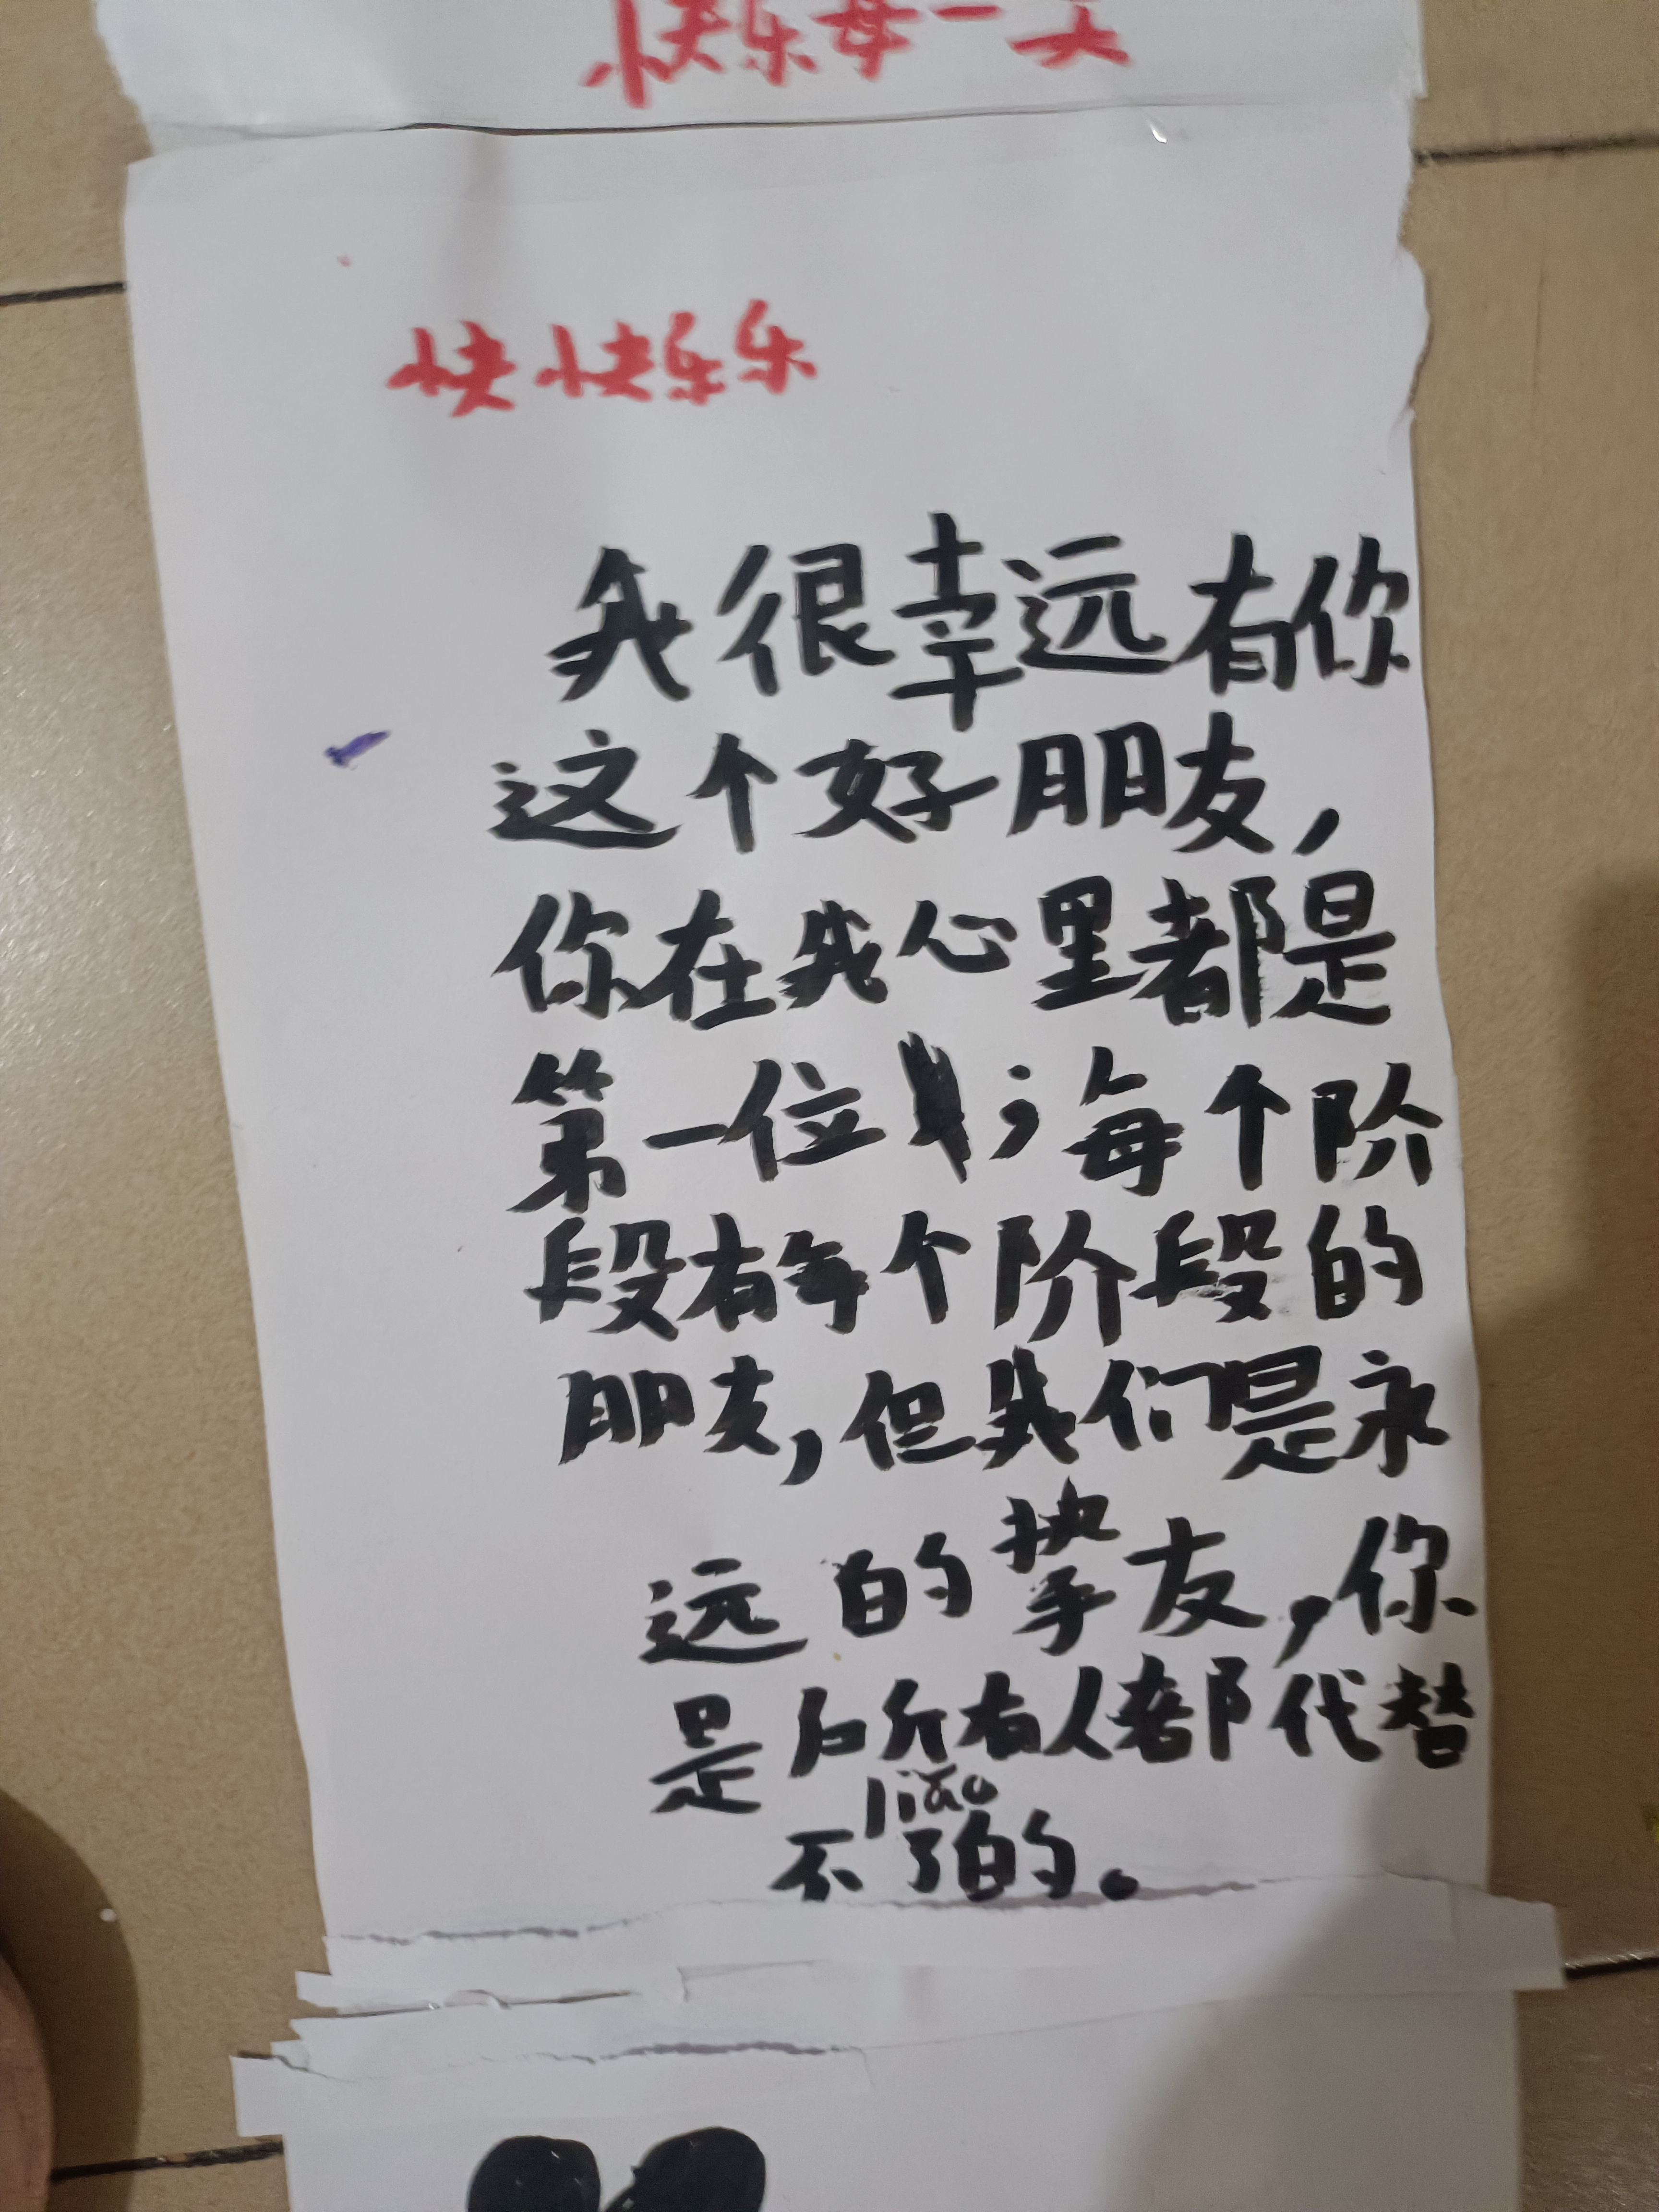 快乐每一天
快快乐乐
我很幸远有你
这个好朋友,
你在我心里都是
第一位;每个阶
段有每个阶段的
朋友,但我们是永
远的挚友,你
是所有人都代替
liǎo
不了的。